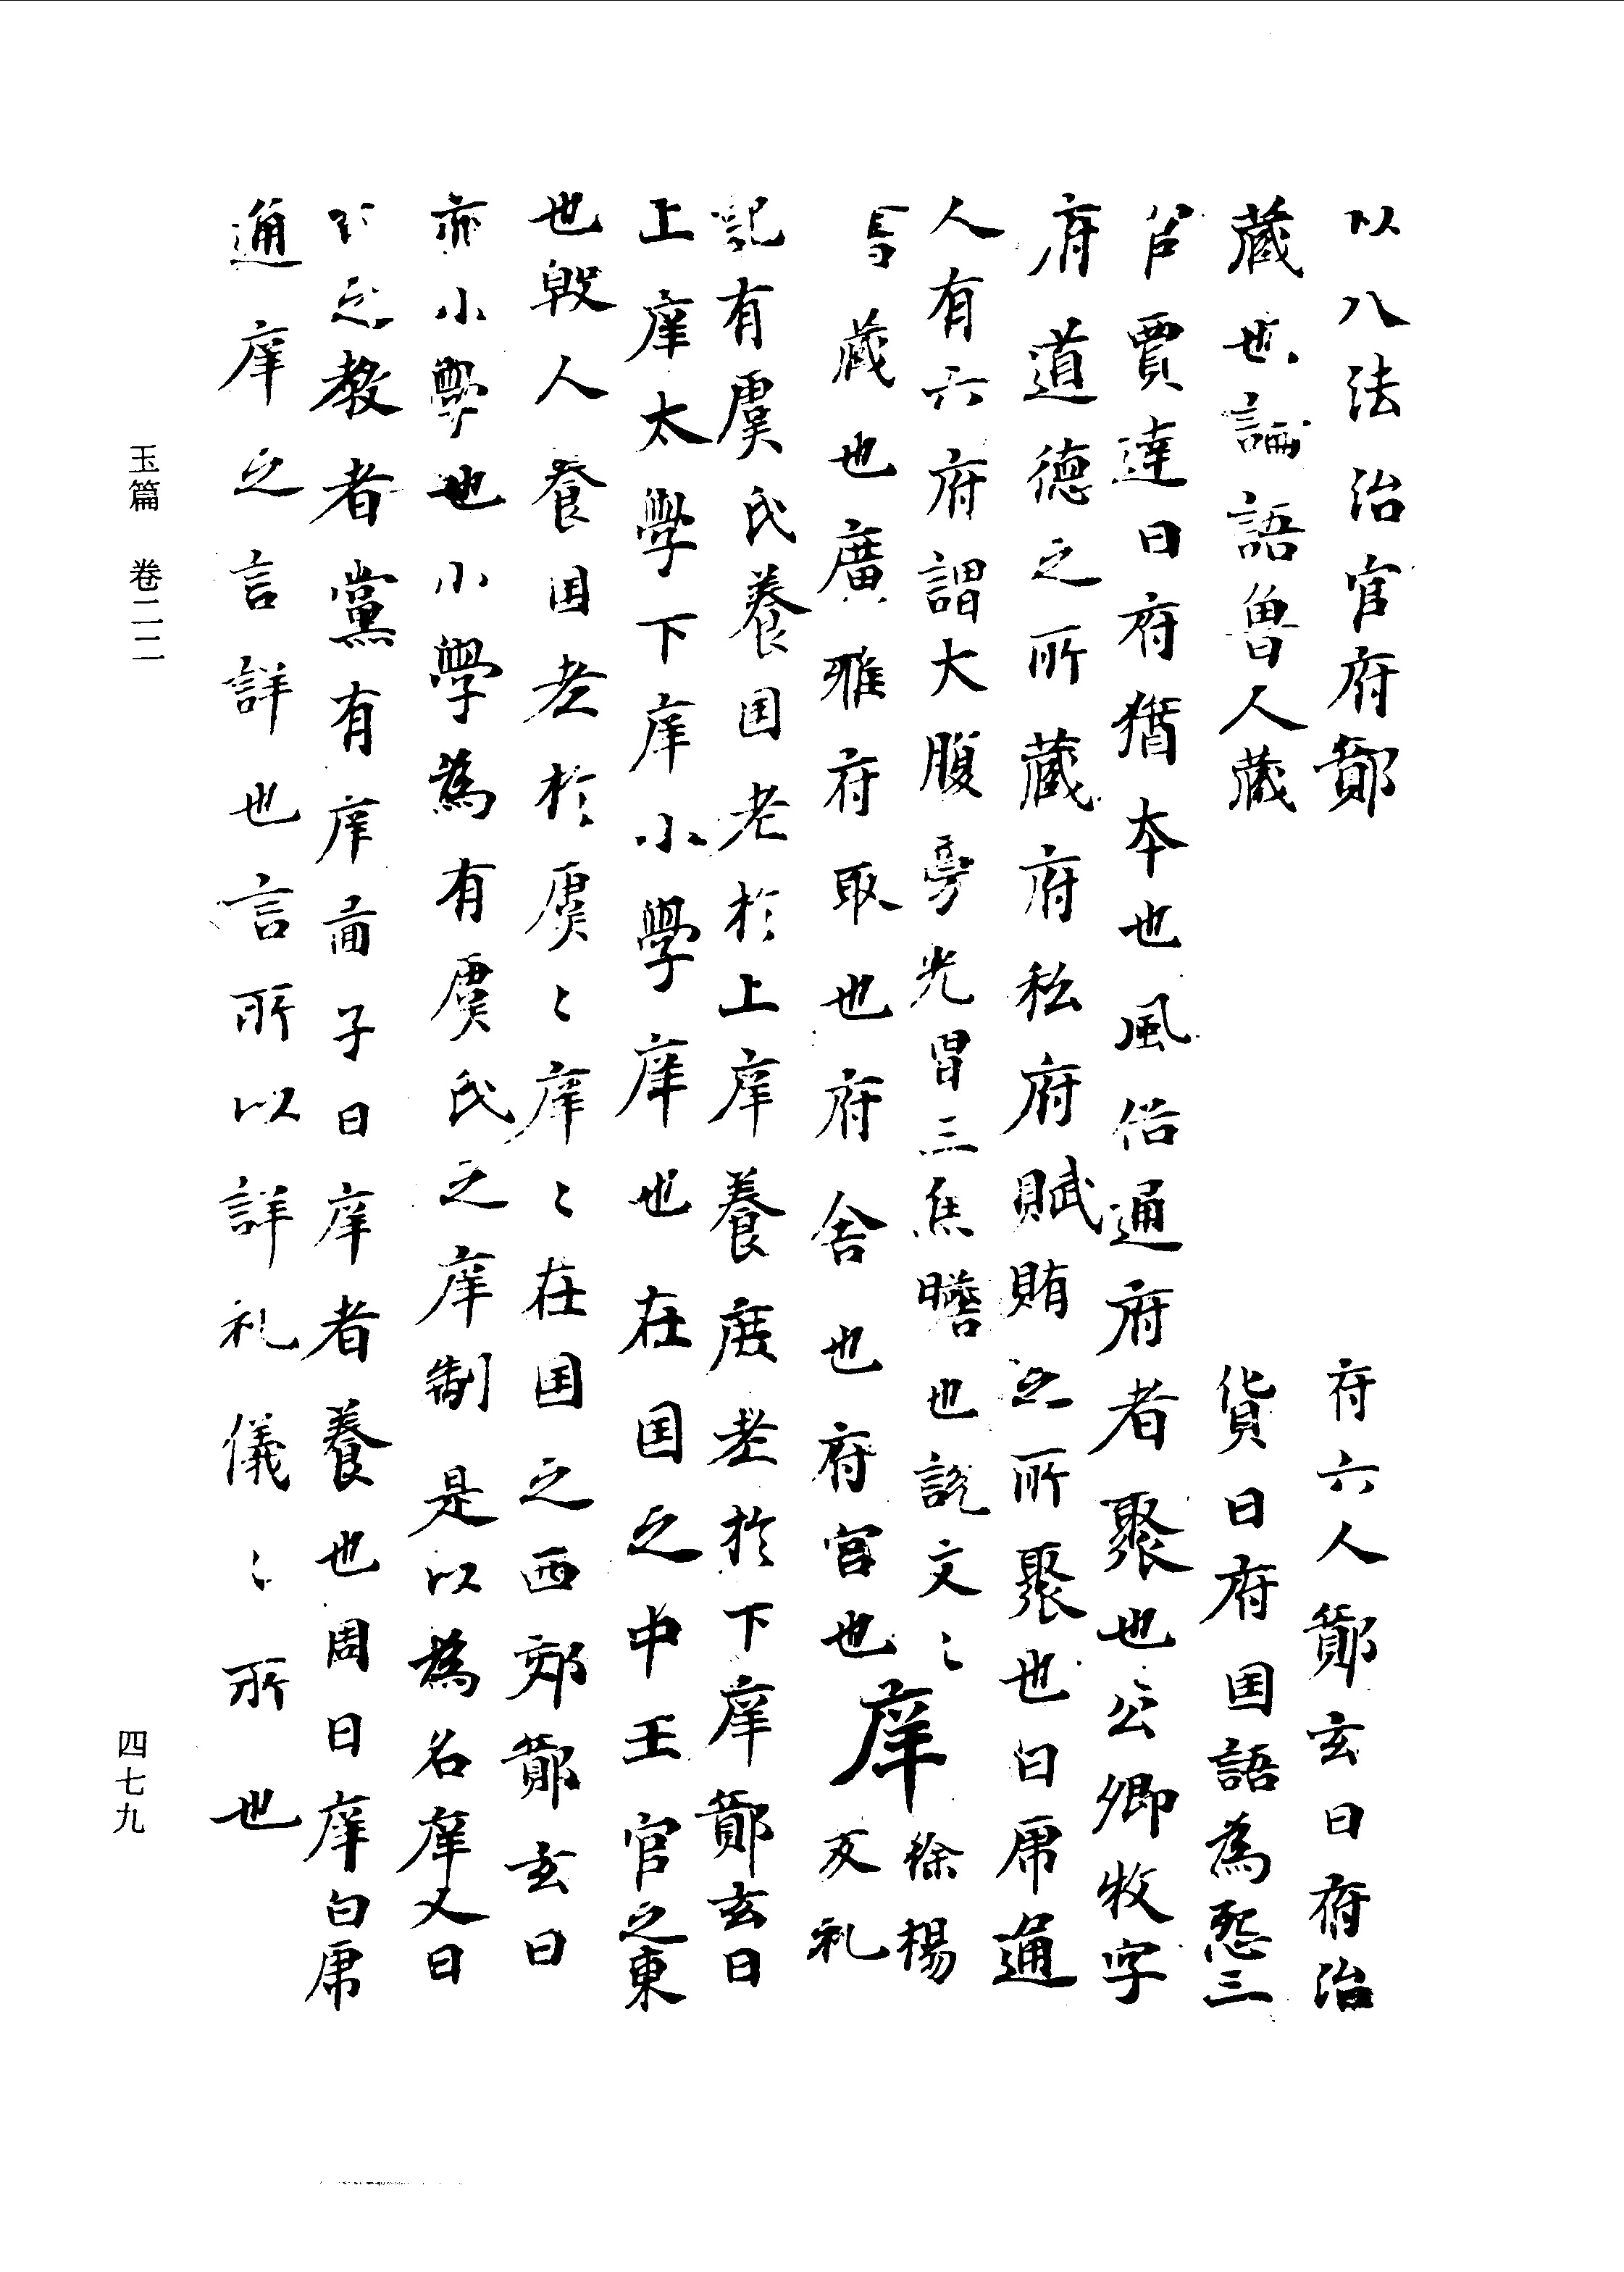 以八法治官府鄭　府六人鄭玄曰府治
藏也論語魯人藏　貨曰府国語為怨三
賈逵曰府猶本也風俗通府者聚也公卿牧守
府道德之所藏府私府賦賄之所聚也曰虎通
人有六府謂大腹旁光胃三焦瞻也說文〻
藏也廣雅府取也府舍也府官也
庠
徐楊
反礼
記有虞氏養国老於上庠養庶老於下庠鄭玄曰
上庠太學下庠小學庠也在国之中王官之東
也殷人養国老於虞〻庠〻在国之西郊鄭玄曰
亦小學也小學為有虞氏之庠制是以為名庠又曰
之教者黨有庠孟子曰庠者養也周曰庠白虎
通庠之言詳也言所以詳礼儀〻所也
玉篇　卷二二
四七九